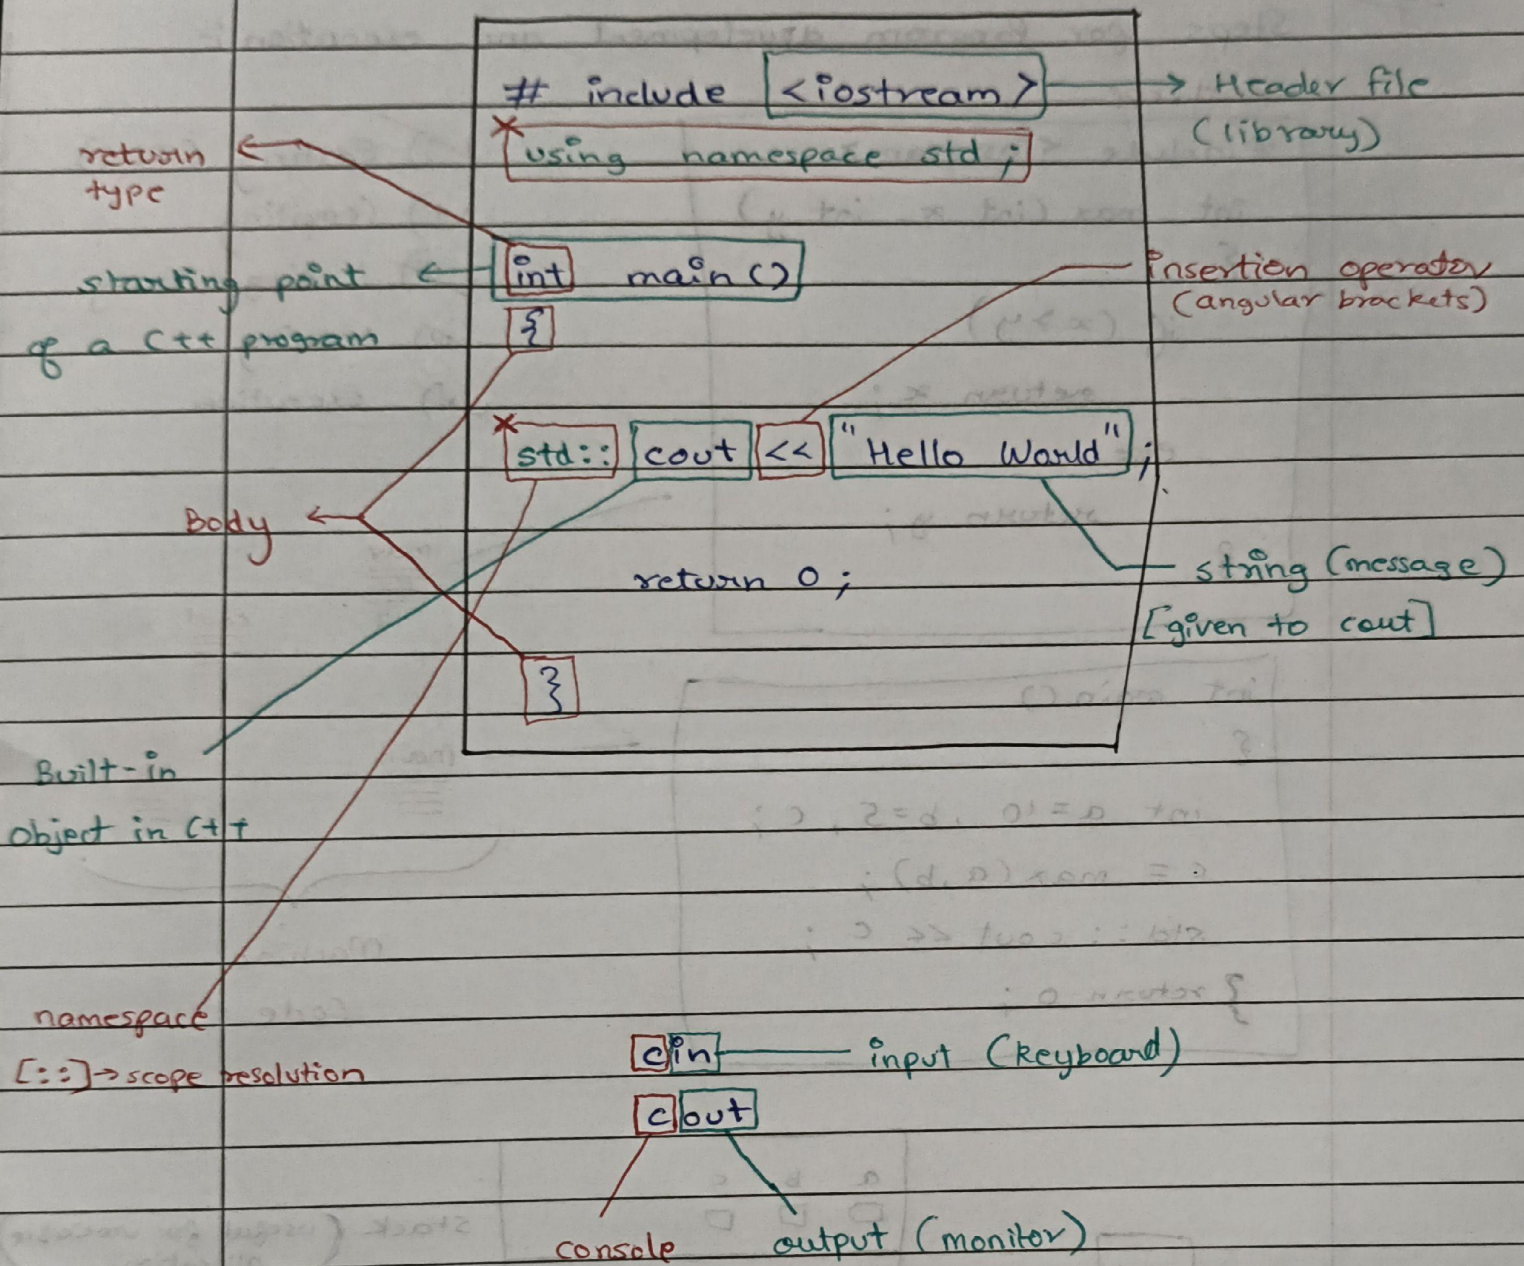 # include <iostream> → Header file
(library)
× using namespace std ;
return
type
int main()
starting point
of a C++ program
insertion operator
(angular brackets)
{
× std:: cout << "Hello World" ;
Body
return 0 ;
string (message)
[given to cout]
}
Built-in
object in C++
namespace
[::]→ scope resolution
cin input (keyboard)
cout
console output (monitor)